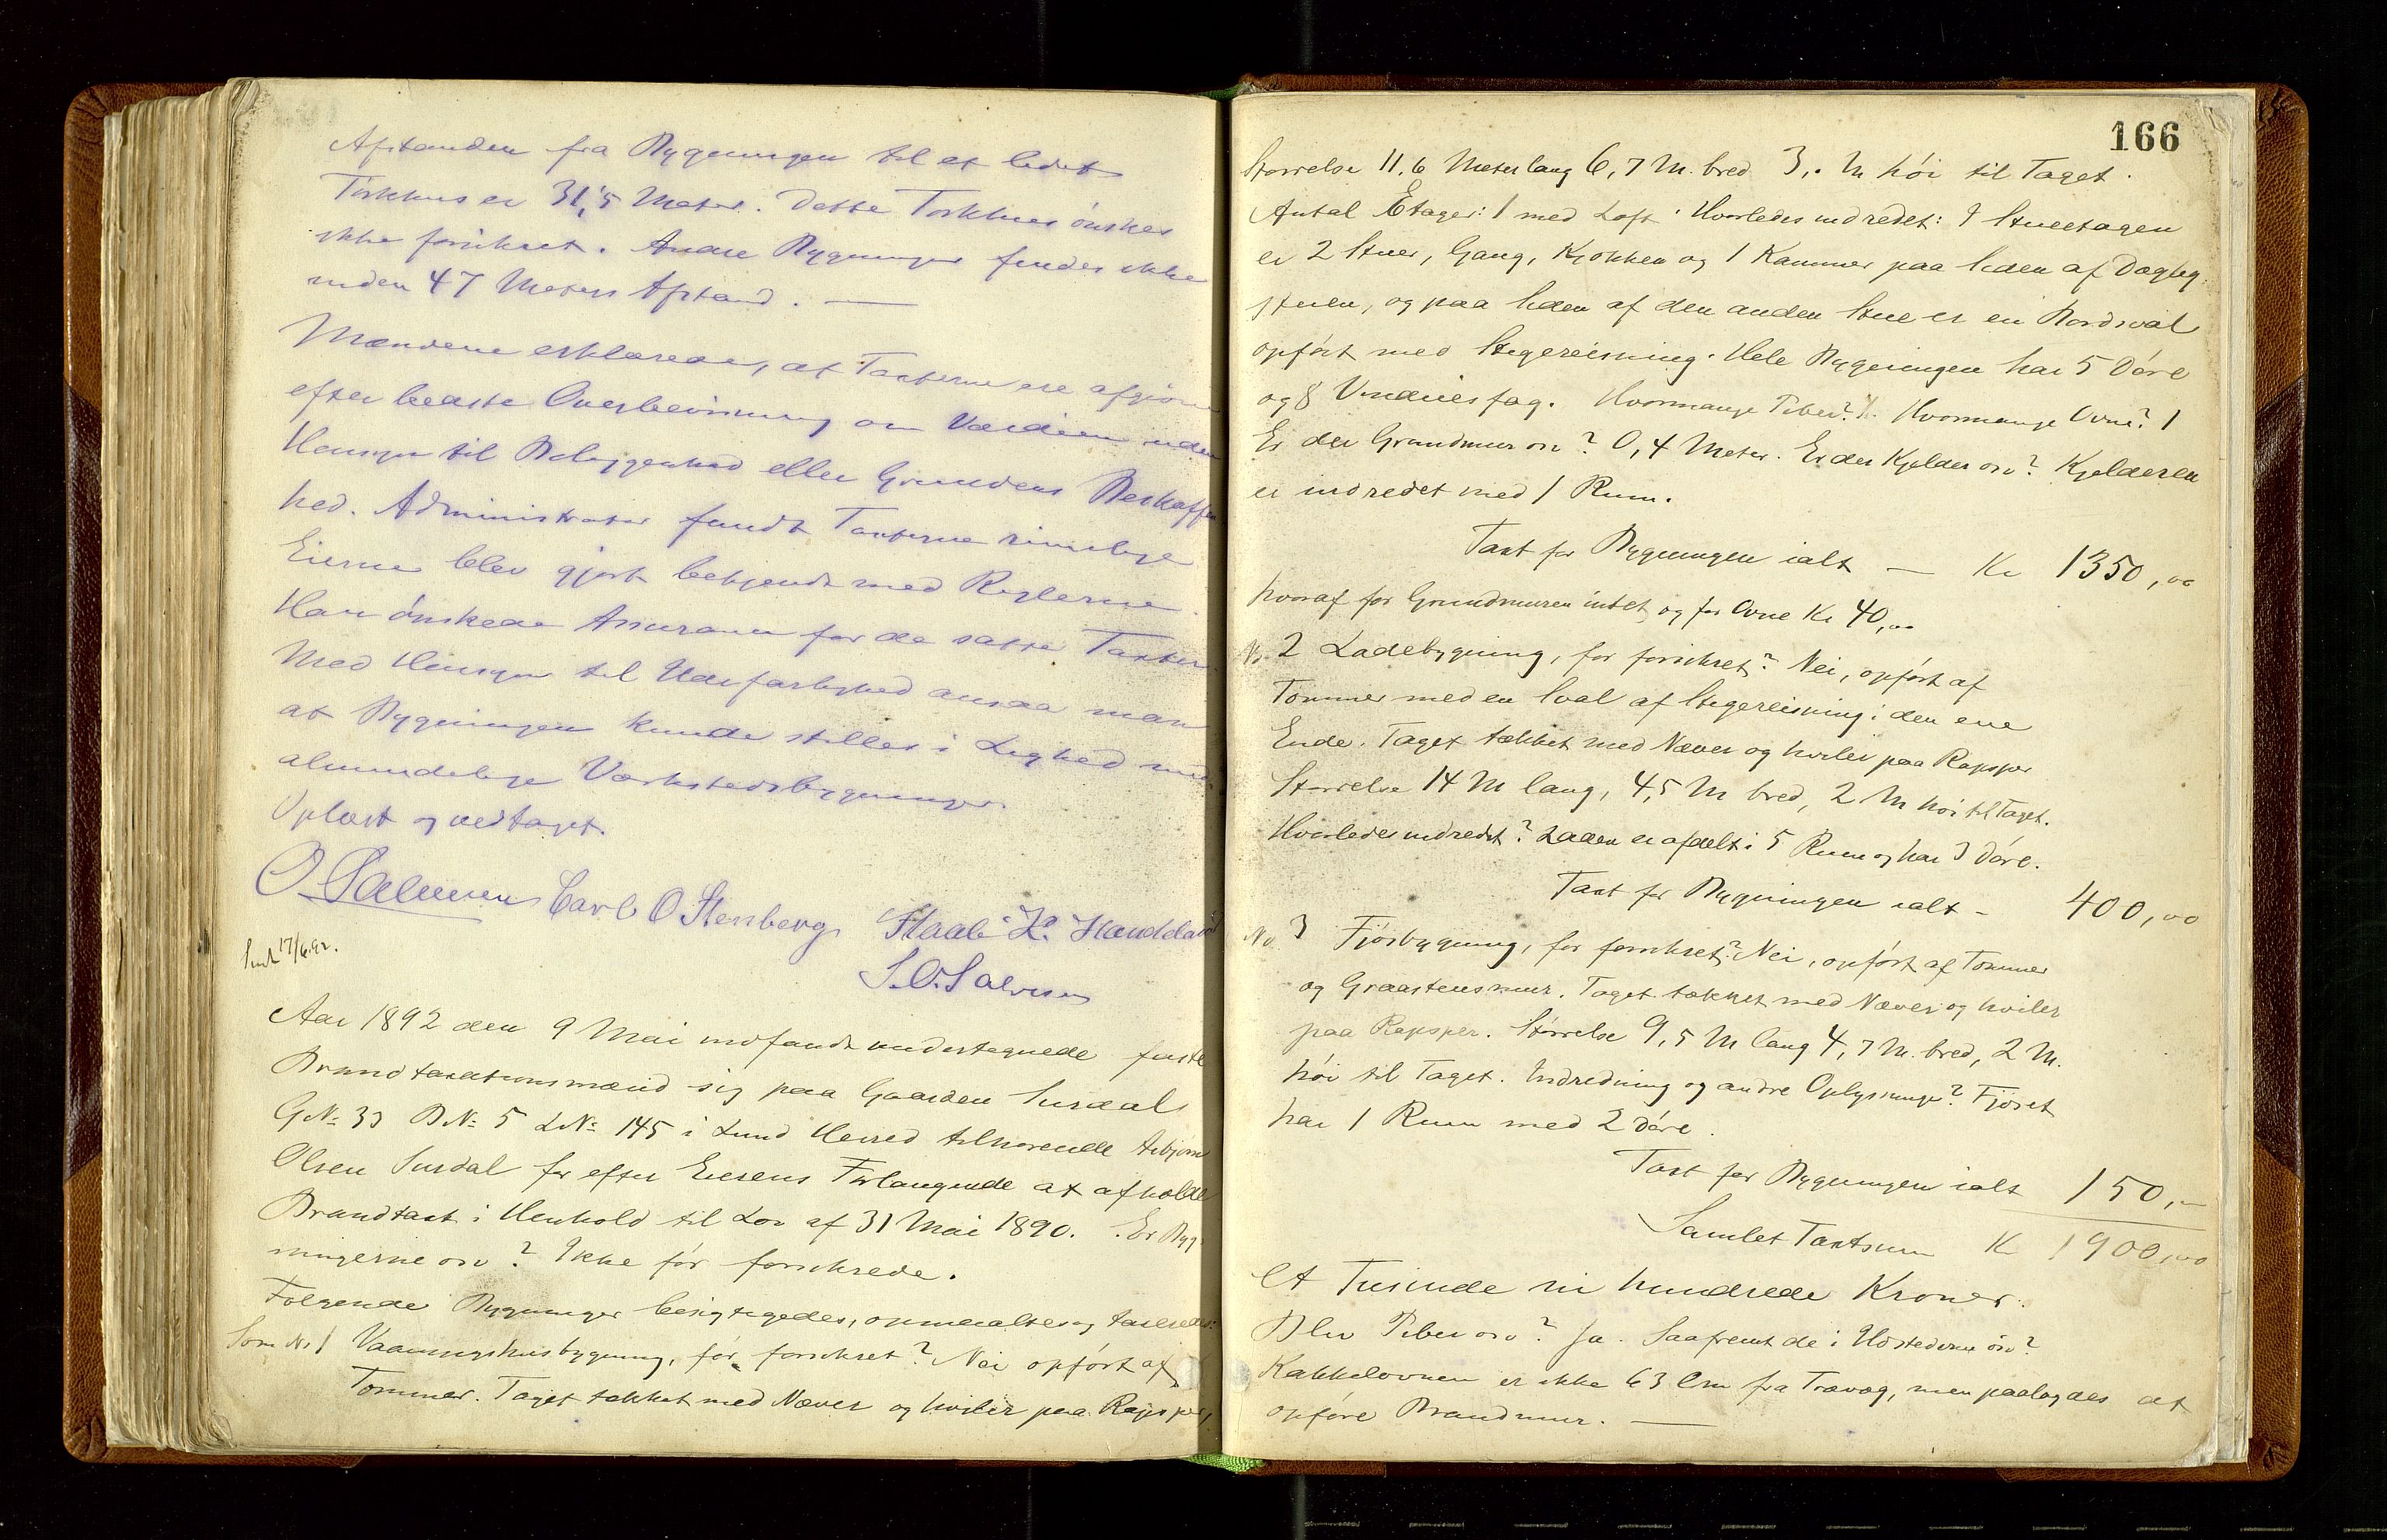 Afstanden fra Bygningen til et lidet
Törkhus er 31,5 Meter. Dette Torkhus önskes
ikke forsikret. Andre Bygninger findes ikke
inden 47 Meters Afstand. —
Mændene erklærede, at Taxterne ere afgivne
efter bedste Overbevisning om Værdien uden
Hensyn til Beliggenhed eller Grundens Beskaffen
hed. Administrator fandt Taxterne rimelige
Eierne blev gjort bekjendt med Reglerne.
Han önskede Assurance for de satte Taxter.
Med Hensyn til Ildsfarlighed ansaa man
at Bygningen kunde stilles i Lighed med
almindelige Værkstedsbygninger.
Oplæst og vedtaget.
O. Salmesen Carl O Stenberg Staale L. Handeland
S. O. Salvesen
17/6.92.
Aar 1892 den 9 Mai indfandt undertegnede faste
Brandtaxationsmænd sig paa Gaarden Surdal
GN: 33 BN: 5 LN: 145 i Lund Herred tilhorende Asbjörn
Olsen Surdal for efter Eierens Forlangende at afholde
Brandtaxt i Henhold til Lov af 31 Mai 1890. Er Byg
ningerne osv? Ikke för forsikrede.
Folgende Bygninger besigtigedes, opmaaltes og taxeredes:
Som No 1 Vaaningshusbygning, för forsikret? Nei opfört af
Tommer. Taget tækket med Næver og hviler paa Rapsper,
166
Storrelse 11,6 Meter lang 6,7 M. bred 3,. M höi til Taget.
Antal Etager: 1 med Loft. Hvorledes indredet: I Stueetagen
er 2 Stuer, Gang, Kjokken og 1 Kammer paa Siden af Daglig
stuen, og paa Siden af den anden Stue er en Bordsval
opfört med Stegereisning. Hele Bygningen har 5 Döre
og 8 Vinduesfag. Hvormange Piber? 1. Hvormange Ovne? 1
Er der Grundmur osv? 0,4 Meter. Er der Kjelder osv? Kjelderen
er indredet med 1 Rum.
Taxt for Bygningen ialt — Kr 1350,00
hvoraf for Grundmuren intet og for Ovne Kr 40,00
No 2 Ladebygning, för forsikret? Nei, opfört af
Tommer med en Sval af Stegereisning i den ene
Ende. Taget tækket med Næver og hviler paa Rapsper
Storrelse 14 M lang, 4,5 M bred, 2 M höi til Taget.
Hvorledes indredet? Laden er afdelt i 5 Rum og har 3 Döre.
Taxt for Bygningen ialt – 400,00
No 3 Fjösbygning, för forsikret? Nei, opfört af Tommer
og Graastensmur. Taget tækket med Næver og hviler
paa Rapsper. Störrelse 9,5 M lang 4,7 M. bred, 2 M.
höi til Taget. Indredning og andre Oplysninger? Fjöset
har 1 Rum med 2 Döre.
Taxt for Bygningen ialt 150,–
Samlet Taxtsum Kr 1900,00
Et Tusinde ni hundrede Kroner.
Blev Piber osv? Ja. Saafremt de i Ildstederne osv?
Kakkelovnen er ikke 63 Cm fra Trævæg, men paalagdes at
opföre Brandmur. —